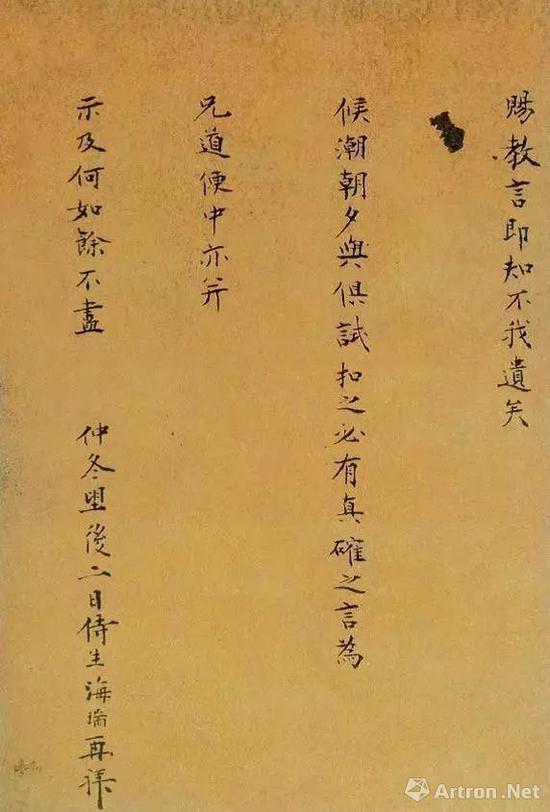 賜教言即知不我遺矣
候潮朝夕與俱試扣之必有真確之言為
兄道便中亦并
示及何如餘不盡
仲冬朢後二日侍生海瑞再拜
Artron.Net